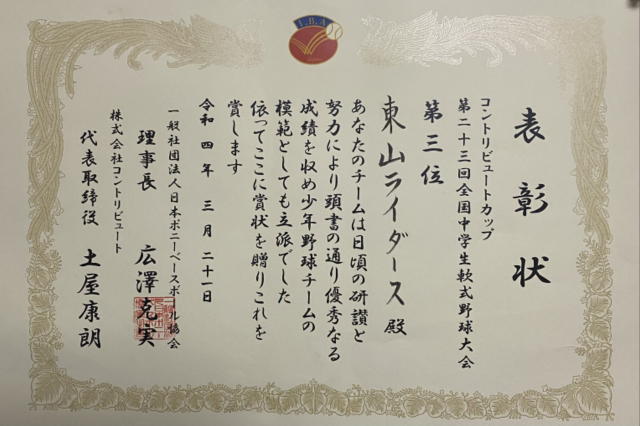 I.B.A
表彰状
コントリビュートカップ
第二十三回全国中学生軟式野球大会
第三位
東山ライダース殿
あなたのチームは日頃の研讃と
努力により頭書の通り優秀なる
成績を収め少年野球チームの
模範としても立派でした
依ってここに賞状を贈りこれを
賞します
令和四年三月二十一日
一般社団法人日本ポニーベースボール協会
理事長 広澤克実
株式会社コントリビュート
代表取締役 土屋康朗